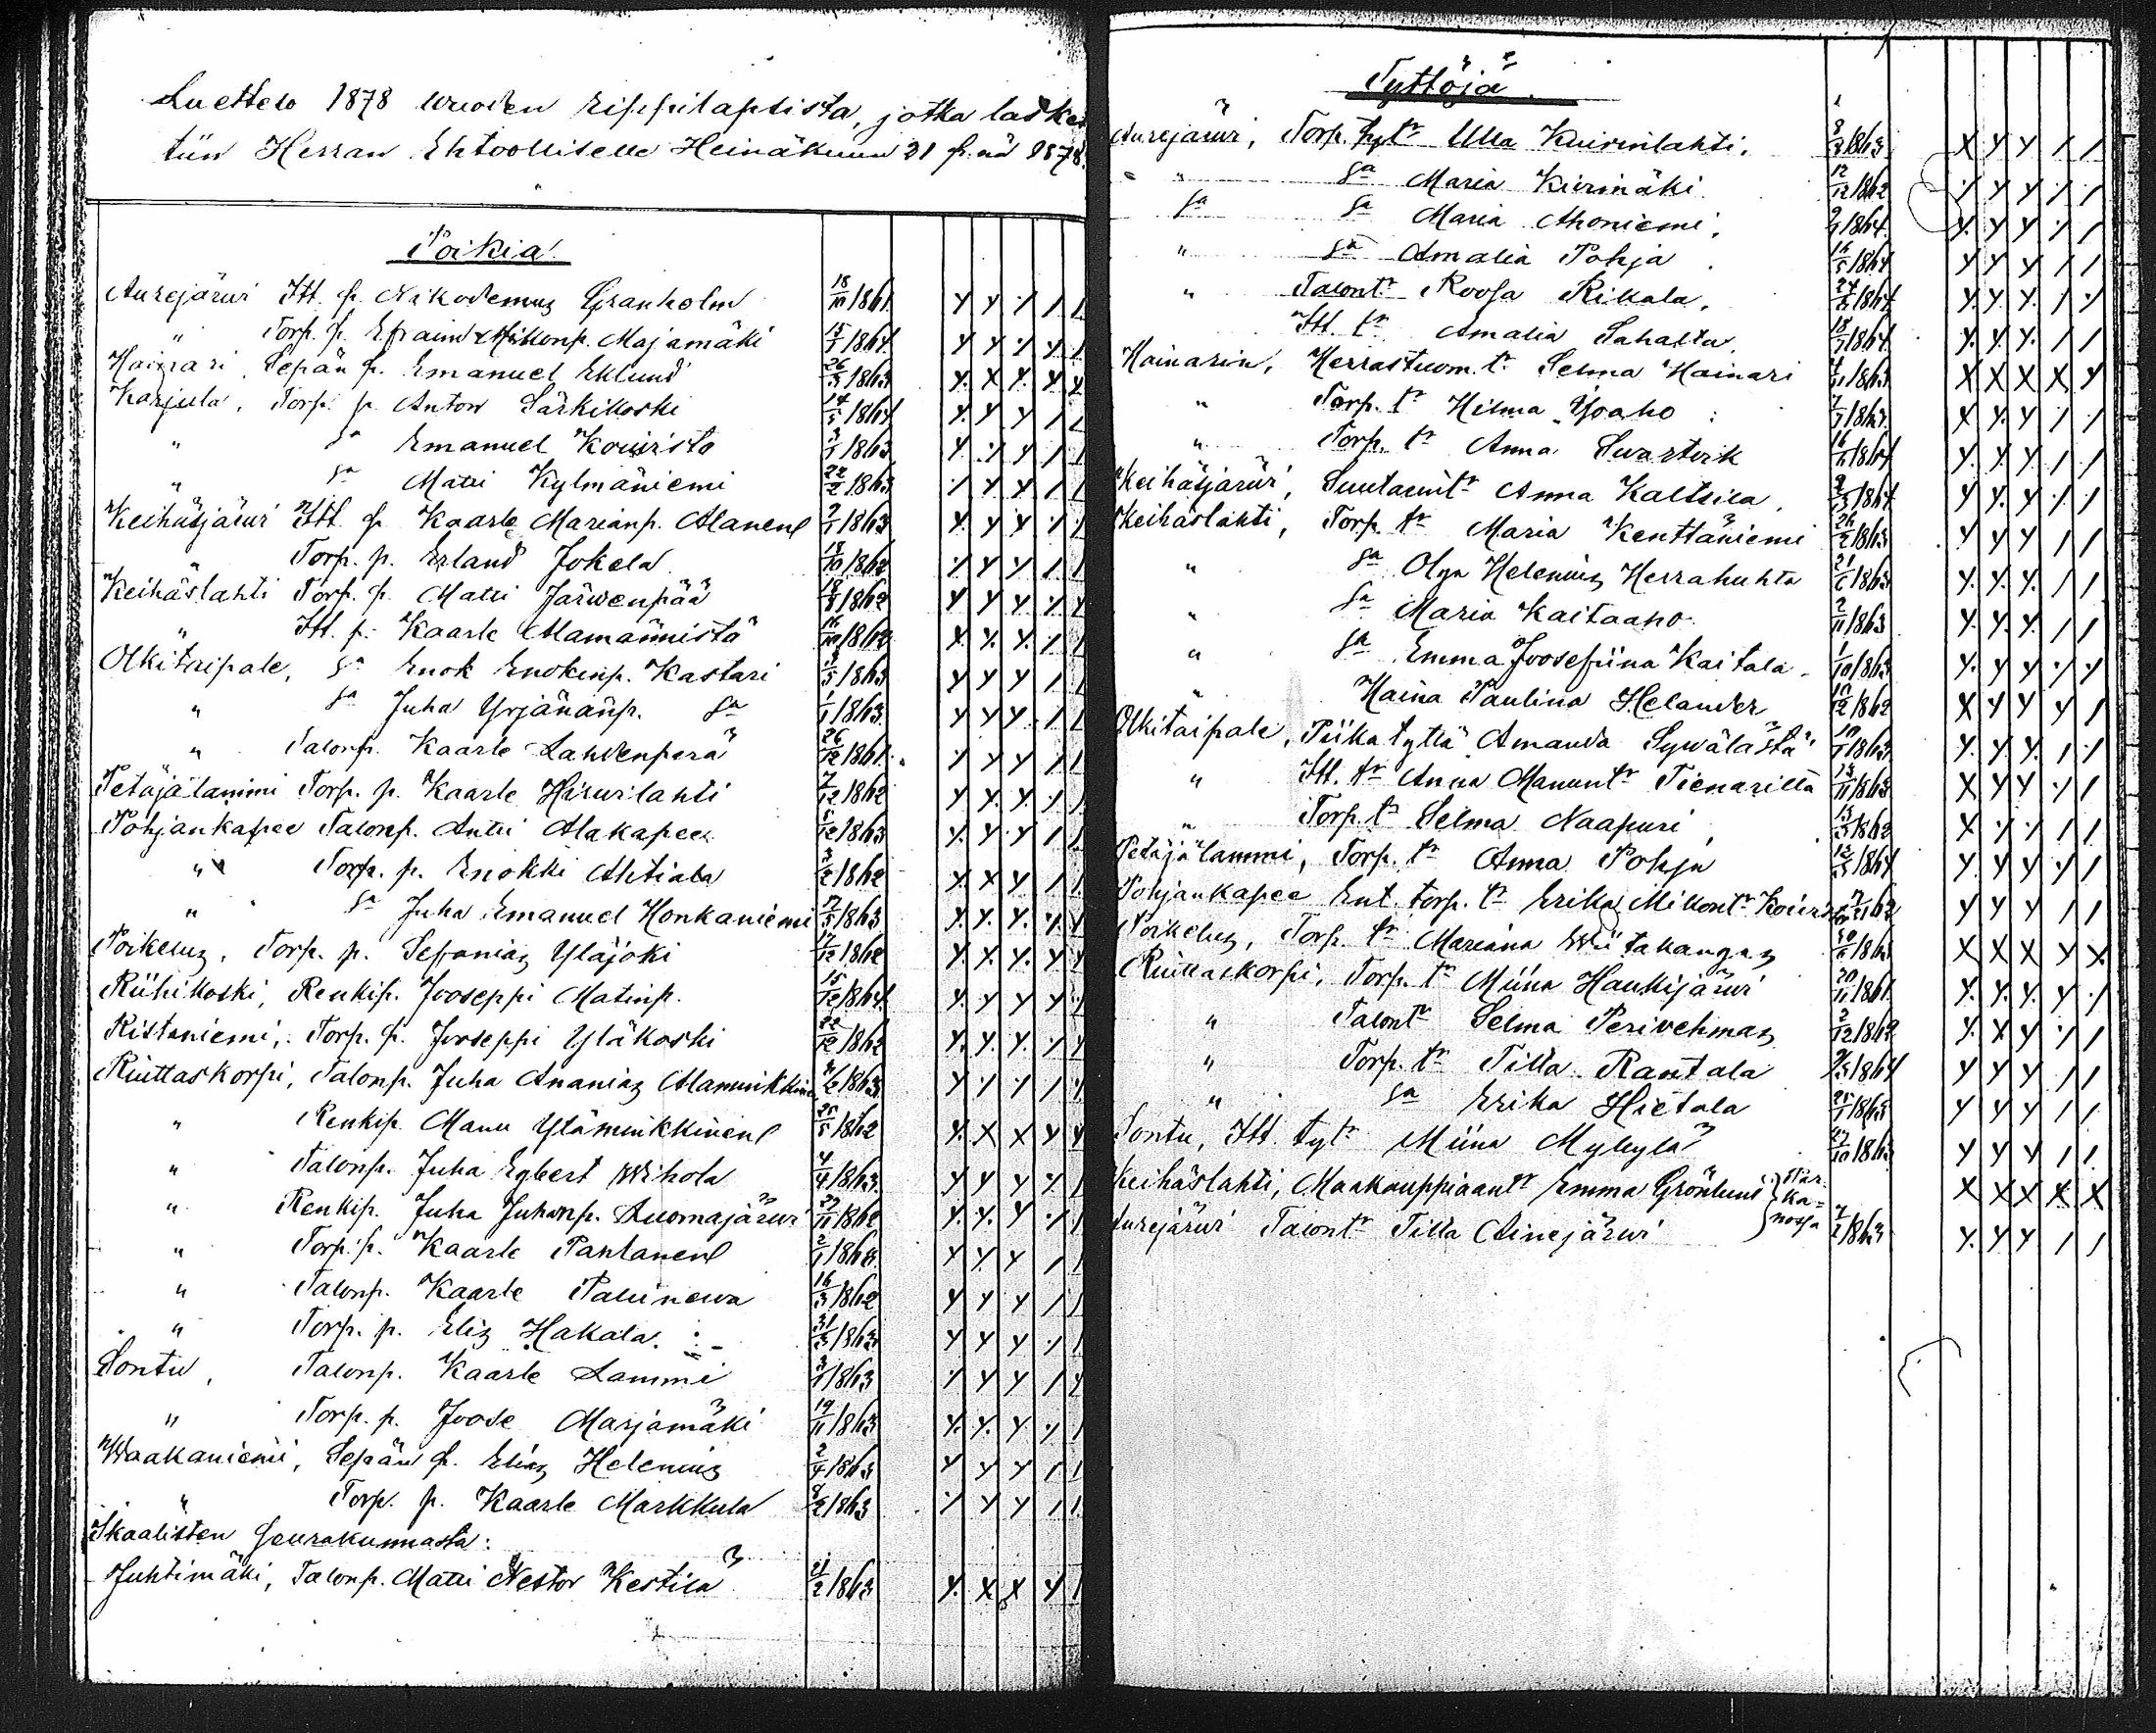 Luettelo 1878 vuoden Rippilapsista, jotka laske
tiin Herran Ehtoolliselle Heinäkuun 21 p:nä 1878.
Poikia
Aurejärwi Itt. p. Nikodemus Granholm 18/10 1861
" Torp. p. Efraim Mikonp. Majamäki 15/1 1864
Hainari Sepän p. Emanuel Eklund 26/3 1863
Karjula, Torp. p. Anton Särkikoski 14/5 1864
" Sa Emanuel Kowisto 1863
" Sa Matti Kylmäniemi 22/2 1863
Keihäsjärwi Itt. p. Kaarle Marianp. Alanen 1863
" Torp. p. Erland Jokela 18/10 1862
Keihäslahti Torp. p. Matti Järwenpää 18/8 1862
" Itt. p. Kaarle Mamännistä 16/10 1862
Olkitaipale, Sa Enok Enokinp. Kastari 1863
" Sa Juha Yrjänänp. Sa 1/1 1863
" Talonp. Kaarle Lahdenperä 26/12 1861
Petäjälammi Torp. p. Kaarle Hirwilahti 7/12 1862
Pohjankapee Talonp. Antti Alakapee 1863
" Torp. p. Enokki Ahtiala 3/2 1862
" Sa Juha Emanuel Honkaniemi 1863
Poikelus, Torp. p. Sefanias Yläjoki 17/12 1862
Riihikoski, Renkip. Jooseppi Matinp. 15/12 1864
Ristaniemi, Torp. p. Jooseppi Yläkoski 22/12 1862
Riuttaskorpi, Talonp. Juha Ananias Alaminkkinen 1863
" Renkip. Manu Yläminkkinen 1862
" Talonp. Juha Egbert Wihola 4/4 1863
" Renkip. Juha Juhanp. Luomajärwi 29/11 1862
" Torp. p. Kaarle Pantanen
" Talonp. Kaarle Palinewa 16/3 1862
" Torp. p. Elis Hakala 31/3 1863
Sontu, Talonp. Kaarle Lammi 1863
" Torp. p. Joose Marjamäki 19/11 1863
Waakaniemi, Sepän p. Elias Helenius 2/4 1863
" Torp. p. Kaarle Markkula 8/2 1863
Ikaalisten Seurakunnasta:
Juhtimäki, Talonp. Matti Nestor Kestilä 21/2 1863
Tyttöjä
Aurejärwi, Torp. tytr Ulla Kuirinlahti, 1863
" Sa Maria Kiirimäki 12/12 1862
Sa Sa Maria Ahoniemi, 1864
" Sa Amalia Pohja 16/5 1864
" Talontr Roosa Rikala, 1864
Itt. tr Amalia Sahalta 1864
Hainarin, Herrastuom. tr Selma Hainari 1863
" Torp. tr Hilma Yoaho 1863
" Torp. tr Anna Swartvik 1864
Keihäsjärwi, Suutarintr Anna Kaltsila, 1864
Keihäslahti, Torp. tr Maria Kenttäniemi 26/2 1863
" Sa Olga Helenius Herrahuhta 21/6 1863
" Sa Maria Kaitaaho 2/11 1863
" Sa Emma Joosefiina Kaitala 1/10 1863
" Haina Paulina Helander 1862
Olkitaipale, Piika tyttö Amanda Sywälästä 1863
" Itt. tr Anna Manuntr Tienarilta 1863
" Torp. tr Selma Naapuri 1862
Petäjälammi, Torp. tr Anna Pohja 1864
Pohjankapee Ent. torp. tr Erika Mikontr
Poikelus, Torp. tr Mariana Wiitakangas
Riuttaskorpi, Torp. tr Miina Haukijärwi 20/11 1861
" Talontr Selma Perivehmas 2/12 1862
" Torp. tr Tilla Rantala 1864
" Sa Erika Hietala 1863
Sontu, Itt. tytr Miina Mylylä 27/10 1863
Keihäslahti, Maakauppiaantr Emma Grönlund } Par-
ka-
nossa
Aurejärwi Talontr Tilla Ainejärwi 1863